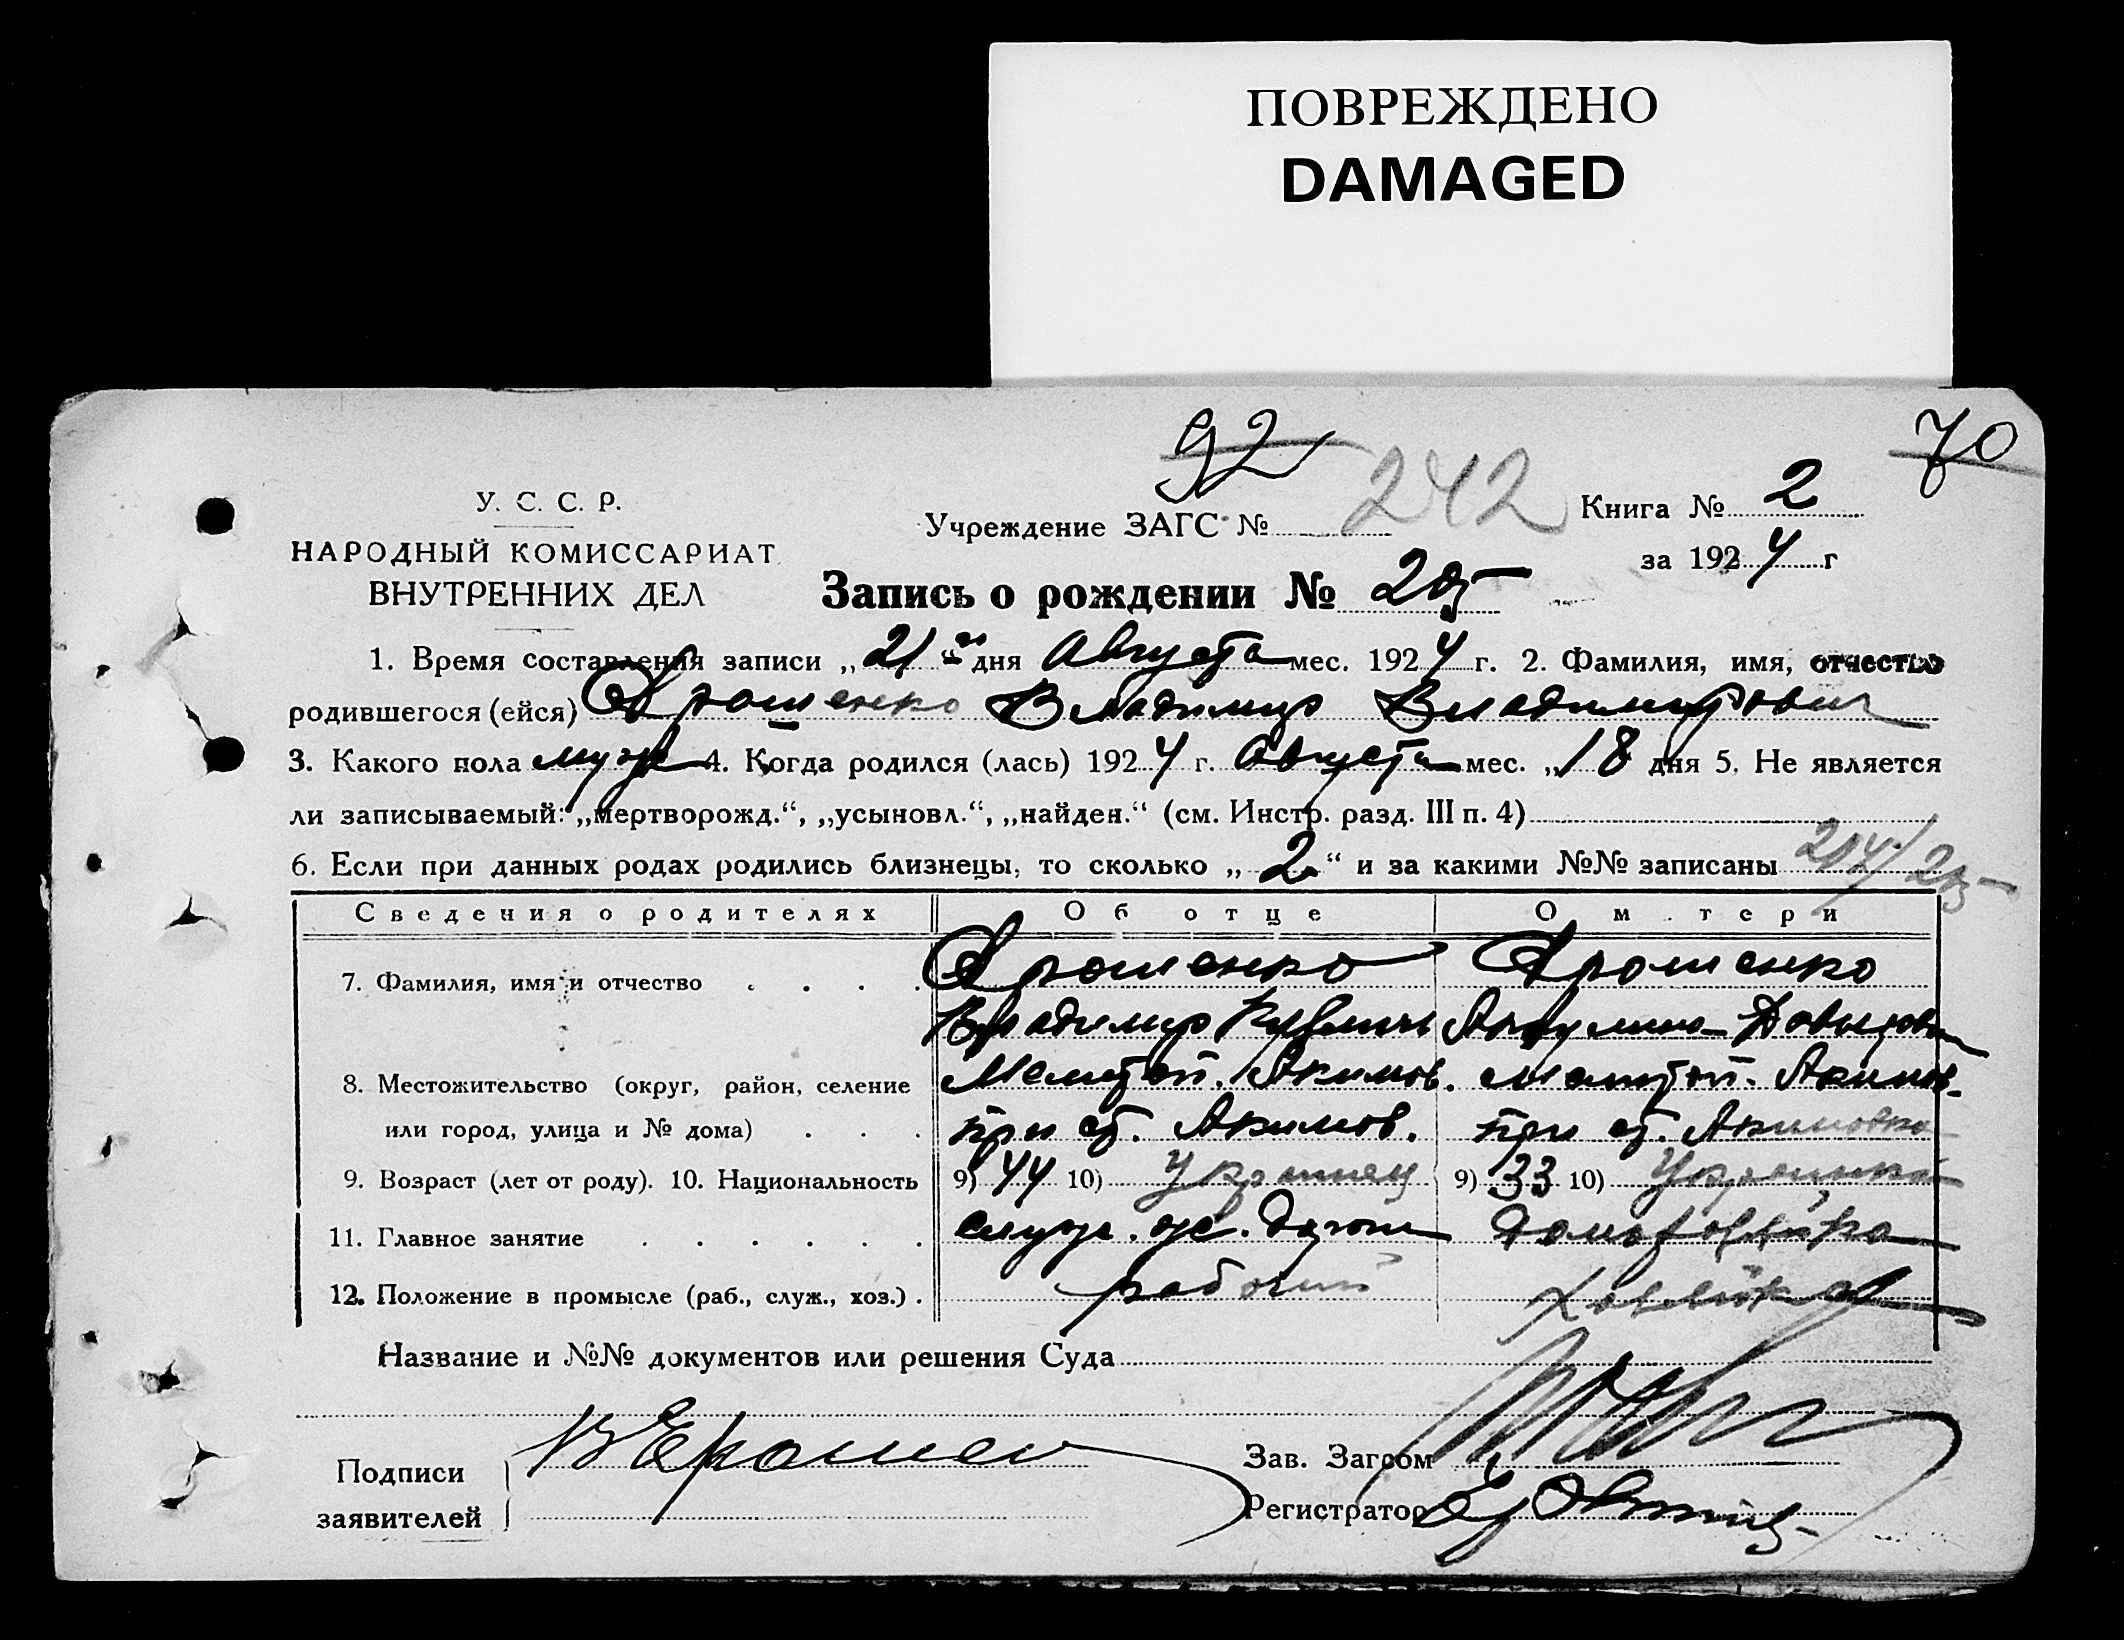 ПОВРЕЖДЕНО
DAMAGED
92
70
242
У. С. С. Р.
НАРОДНЫЙ КОМИССАРИАТ
ВНУТРЕННИХ ДЕЛ
Учреждение ЗАГС №
Книга № 2
за 1924 г
Запись о рождении № 205
1. Время составления записи „21“го дня Августа мес. 1924 г. 2. Фамилия, имя, отчество
родившегося (ейся) Ярошенко Владимир Владимирович
3. Какого пола муж 4. Когда родился (лась) 1924 г. Августа мес. „18 дня 5. Не является
ли записываемый: „мертворожд.“, „усыновл.“, „найден.“ (см. Инстр. разд. III п. 4)
6. Если при данных родах родились близнецы, то сколько „2“ и за какими №№ записаны 204/205
Сведения о родителях Об отце О м.тери
7. Фамилия, имя и отчество Ярошенко Ярошенко
Владимир Акулина Давыдовн
8. Местожительство (округ, район, селение Мелитоп. Акимов. Мелитоп. Акимов.
или город, улица и № дома) при ст. Акимов. при ст. Акимовка
9. Возраст (лет от роду). 10. Национальность 9) 44 10) Украинец 9) 33 10) Украинка
11. Главное занятие служ. жел. дороги Домохозяйка
12. Положение в промысле (раб., служ., хоз.) рабочий Хозяйка
Название и №№ документов или решения Суда
Подписи
заявителей
В Ерошен
Зав. Загсом
Регистратор